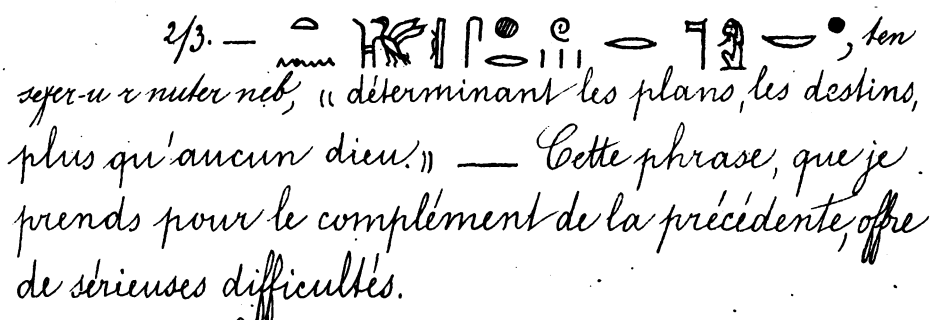 2/3. — , ten
seχer-u r nuter neb, « déterminant les plans, les destins,
plus qu'aucun dieu. » — Cette phrase, que je
prends pour le complément de la précédente, offre
de sérieuses difficultés.